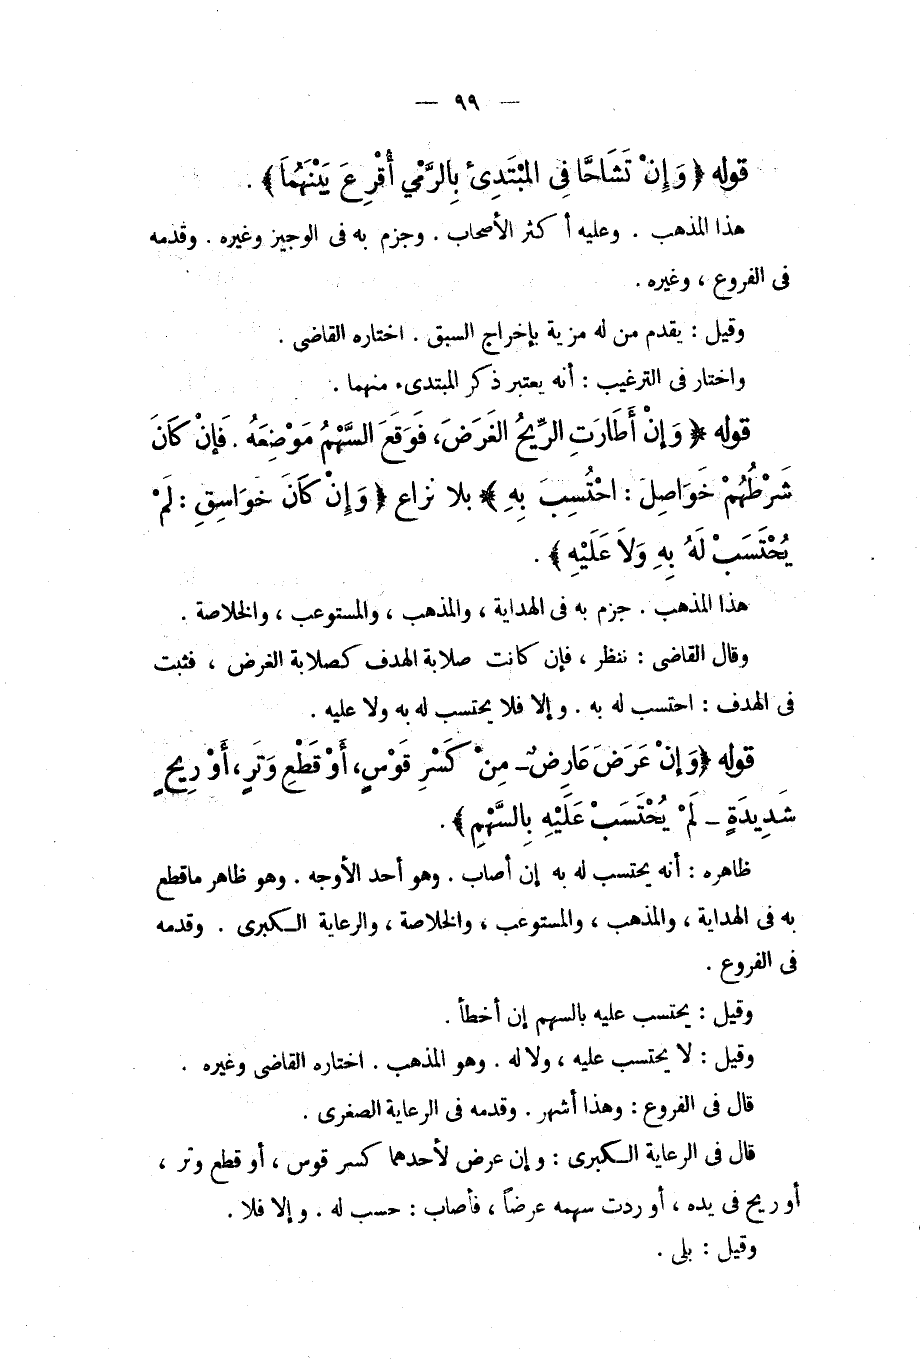 — ٩٩ —
قوله ﴿ وَإِنْ تَشَاحَّا فِى المُبْتَدِئ بِالرَّمْيِ أُقْرِعَ بَيْنَهُمَا ﴾ .
هذا المذهب . وعليه أكثر الأصحاب . وجزم به فى الوجيز وغيره . وقدمه
فى الفروع ، وغيره .
وقيل : يقدم من له مزية بإخراج السبق . اختاره القاضى .
واختار فى الترغيب : أنه يعتبر ذكر المبتدىء منهما .
قوله ﴿ وَإِنْ أَطَارَتِ الرِّيحُ الغَرَضَ، فَوَقَعَ السَّهْمُ مَوْضِعَهُ . فَإِنْ كَانَ
شَرْطُهُمْ خَوَاصِلَ : احْتُسِبَ بِهِ ﴾ بلا نزاع ﴿ وَإِنْ كَانَ خوَاسِقِ : لَمْ
يُحْتَسَبْ لَهُ بِهِ وَلاَ عَلَيْهِ ﴾ .
هذا المذهب . جزم به فى الهداية ، والمذهب ، والمستوعب ، والخلاصة .
وقال القاضى : ننظر ، فإن كانت صلابة الهدف كصلابة الغرض ، فثبت
فى الهدف : احتسب له به . وإلا فلا يحتسب له به ولا عليه .
قوله ﴿ وَإِنْ عَرَضَ عَارِضٌ ـ مِنْ كَسْرِ قَوْسٍ، أَوْ قَطْعِ وَتَرٍ، أَوْ رِيحٍ
شَدِيدَةٍ ـ لَمْ يُحْتَسَبْ عَلَيْهِ بِالسَّهْمِ ﴾ .
ظاهره : أنه يحتسب له به إن أصاب . وهو أحد الأوجه . وهو ظاهر ماقطع
به فى الهداية ، والمذهب ، والمستوعب ، والخلاصة ، والرعاية الكبرى . وقدمه
فى الفروع .
وقيل : يحتسب عليه بالسهم إن أخطأ .
وقيل : لا يحتسب عليه ، ولا له . وهو المذهب . اختاره القاضى وغيره .
قال فى الفروع : وهذا أشهر . وقدمه فى الرعاية الصغرى .
قال فى الرعاية الكبرى : وإن عرض لأحدهما كسر قوس ، أو قطع وتر ،
أو ريح فى يده ، أو ردت سهمه عرضاً ، فأصاب : حسب له . وإلا فلا .
وقيل : بلى .